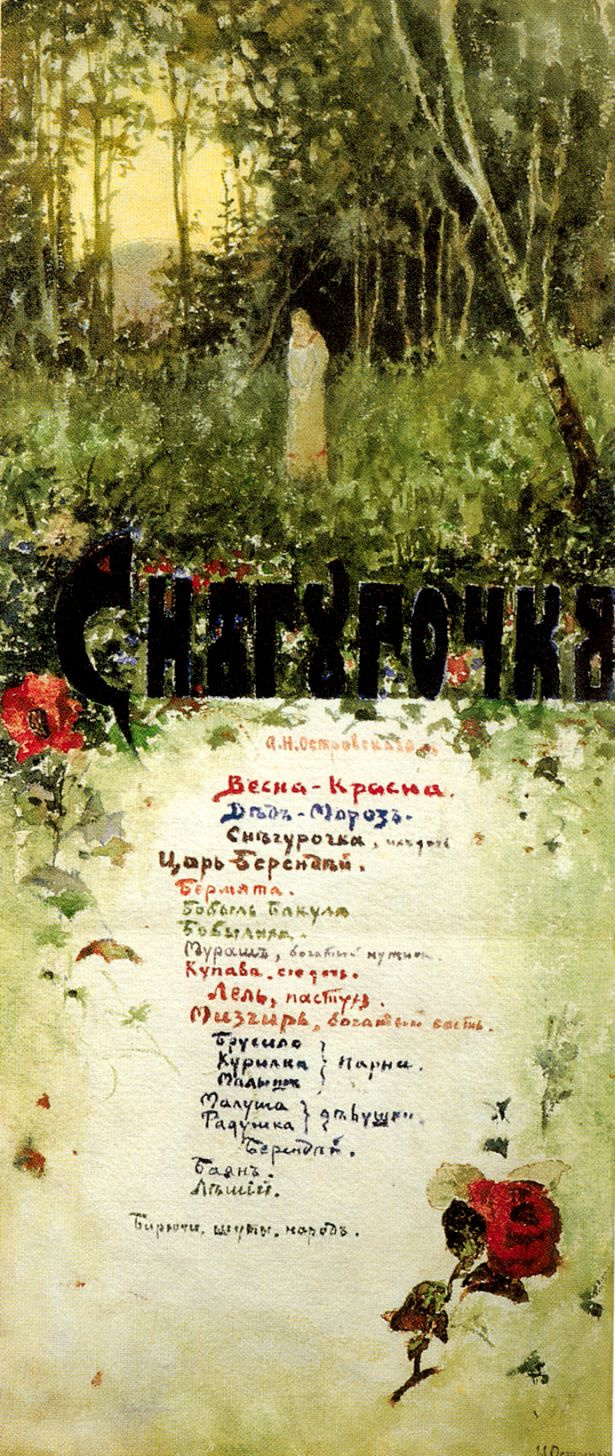 Снѣгурочка
А.Н.Островскаго
Весна-Красна.
Дѣдъ-Морозъ.
Снѣгурочка, ихъ дочь
Царь Берендѣй.
Бермята.
Бобыль Бакула
Бобылиха.
Мурашъ, богатый мужик.
Купава. его дочь.
Лель, пастухъ.
Мизгирь, богатый гость.
Брусило
Курилка } Парни.
Малышъ
Малуша
Радушка } дѣвушки.
Берендѣй.
Баянъ.
Лѣшій.
Бирючи, шуты, народъ.